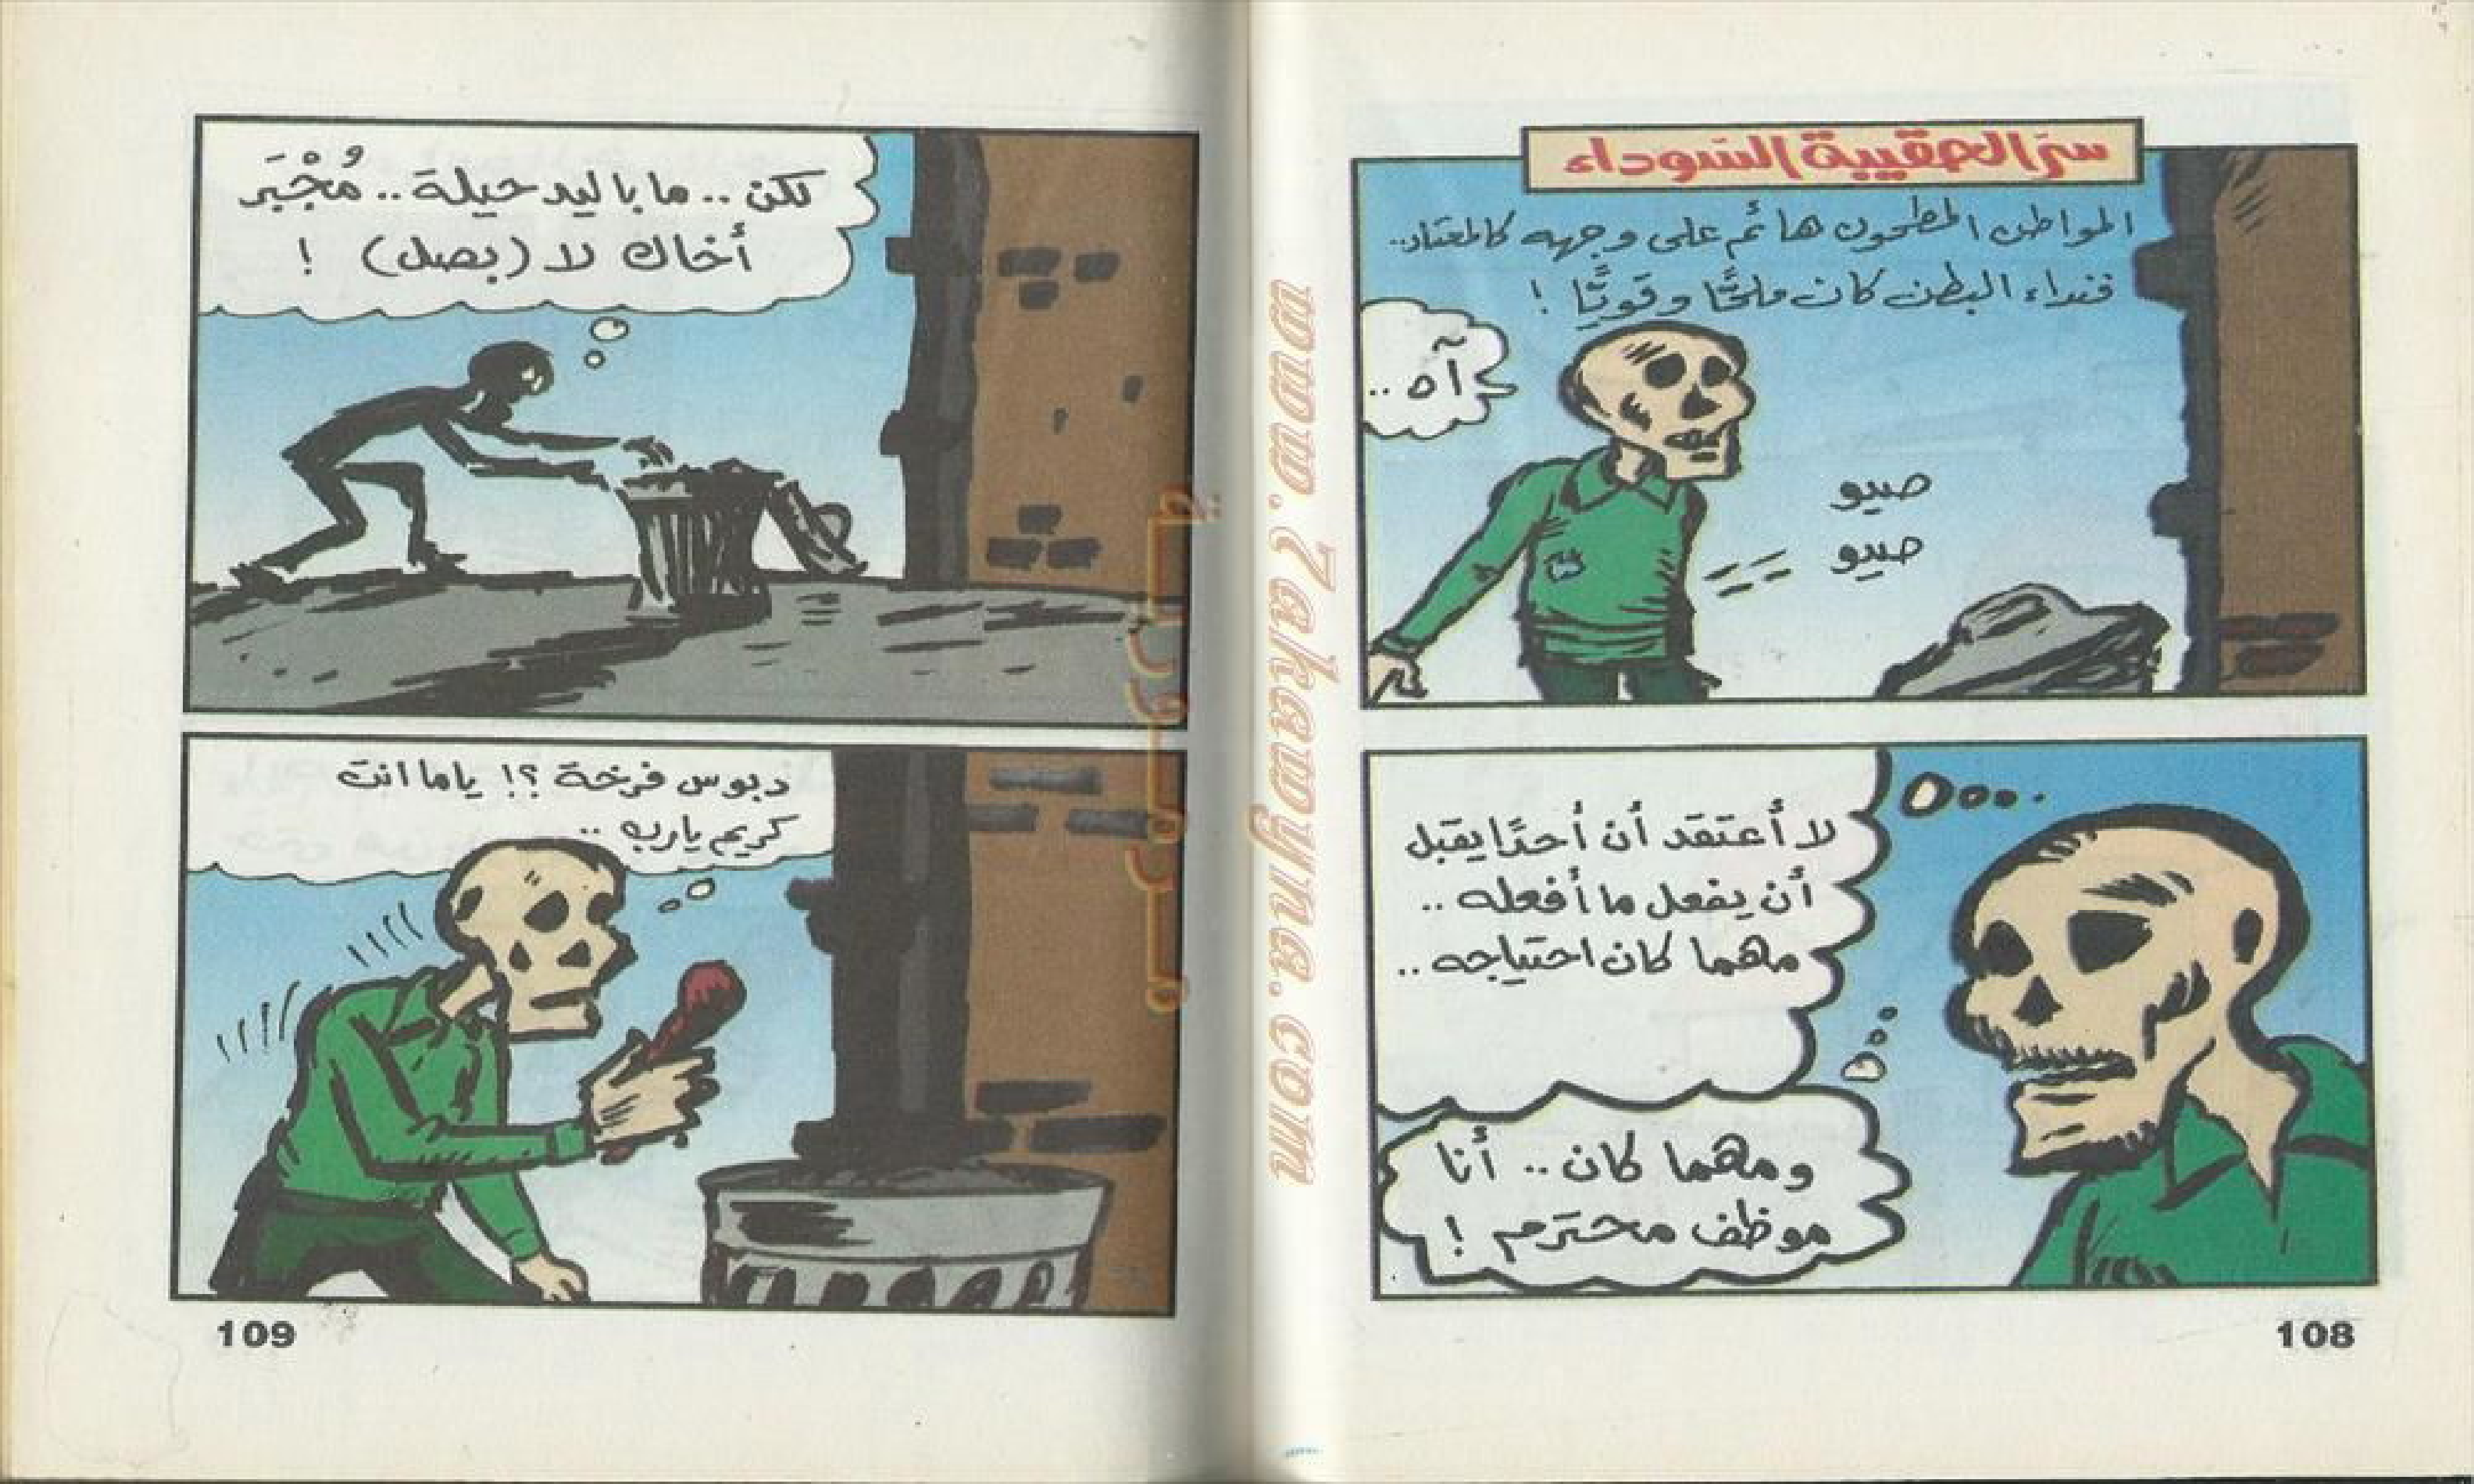 سر الحقيبة السوداء
المواطن المطحون هائم على وجهه كالمعتاد..
فنداء البطن كان ملحًّا وقويًّا !
آه ..
صيو
صيو
لا أعتقد أن أحدًا يقبل
أن يفعل ما أفعله ..
مهما كان احتياجه ..
ومهما كان .. أنا
موظف محترم !
108
لكن .. ما باليد حيلة .. مُجْبَر
أخاك لا (بصل) !
دبوس فرخة ؟! ياما انت
كريم يارب ..
109
www.7akawyna.com